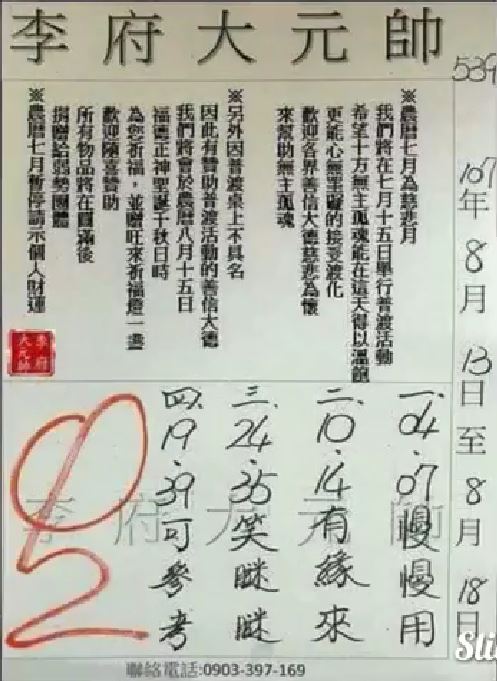 李府大元帥
539
107年8月13日至8月18日
※農曆七月為慈悲月
我們將在七月十五日舉行普渡活動
希望十方無主孤魂能在這天得以溫飽
更能心無罣礙的接受渡化
歡迎各界善信大德慈悲為懷
來幫助無主孤魂
※另外因普渡桌上不具名
因此有贊助普渡活動的善信大德
我們將會於農曆八月十五日
福德正神聖誕千秋日時
為您祈福，並贈旺來祈福燈一盞
歡迎隨喜贊助
所有物品將在圓滿後
捐贈給弱勢團體
※農曆七月暫停請示個人財運
李府
大元帥
一.04.07慢慢用
二.10.14有緣來
三.24.35笑瞇瞇
四.19.39可參考
李府大元帥
聯絡電話:0903-397-169